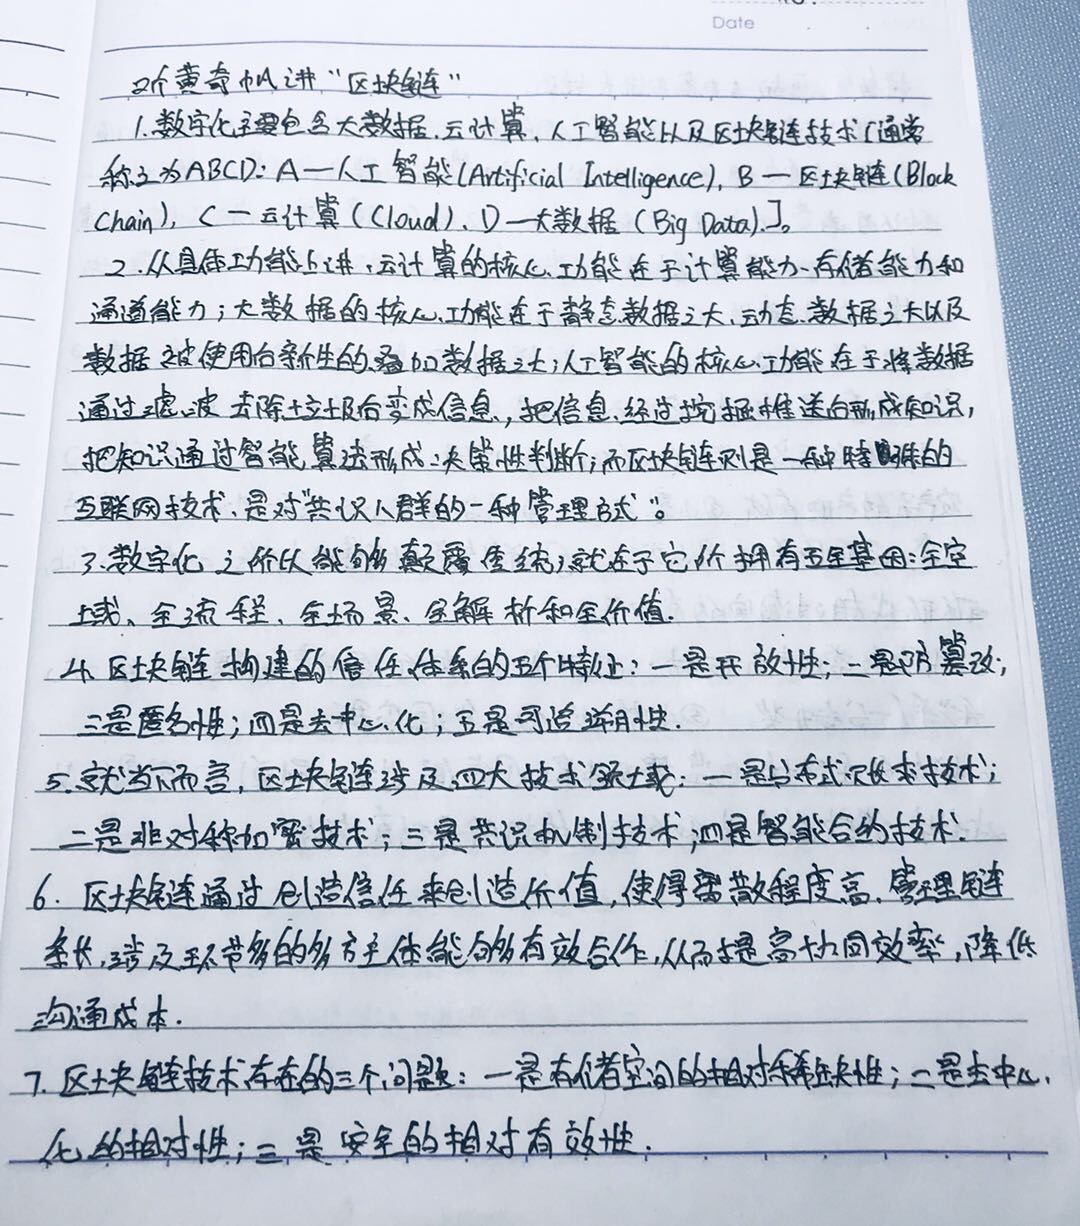 Date
听黄奇帆讲“区块链”
1.数字化主要包含大数据、云计算、人工智能以及区块链技术[通常
称之为ABCD：A—人工智能(Artificial Intelligence)，B—区块链(Block
Chain)，C—云计算(Cloud)、D—大数据(Big Data).]。
2.从具体功能上讲，云计算的核心功能在于计算能力、存储能力和
通道能力；大数据的核心功能在于静态数据之大、动态数据之大以及
数据被使用后新生的叠加数据之大；人工智能的核心功能在于将数据
通过滤波去除垃圾后变成信息，把信息经过挖掘推送后形成知识，
把知识通过智能算法形成决策性判断；而区块链则是一种特殊的
互联网技术，是对“共识人群的一种管理方式”。
3.数字化之所以能够颠覆传统，就在于它所拥有五全基因：全空
域、全流程、全场景、全解析和全价值.
4.区块链构建的信任体系的五个特征：一是开放性；二是防篡改；
三是匿名性；四是去中心化；五是可追溯性.
5.就当下而言，区块链涉及四大技术领域：一是分布式账本技术；
二是非对称加密技术；三是共识机制技术；四是智能合约技术.
6.区块链通过创造信任来创造价值，使得离散程度高、管理链
条长，涉及环节多的多方主体能够有效合作，从而提高协同效率，降低
沟通成本.
7.区块链技术存在的三个问题：一是存储空间的相对稀缺性；二是去中心
化的相对性；三是安全的相对有效性.